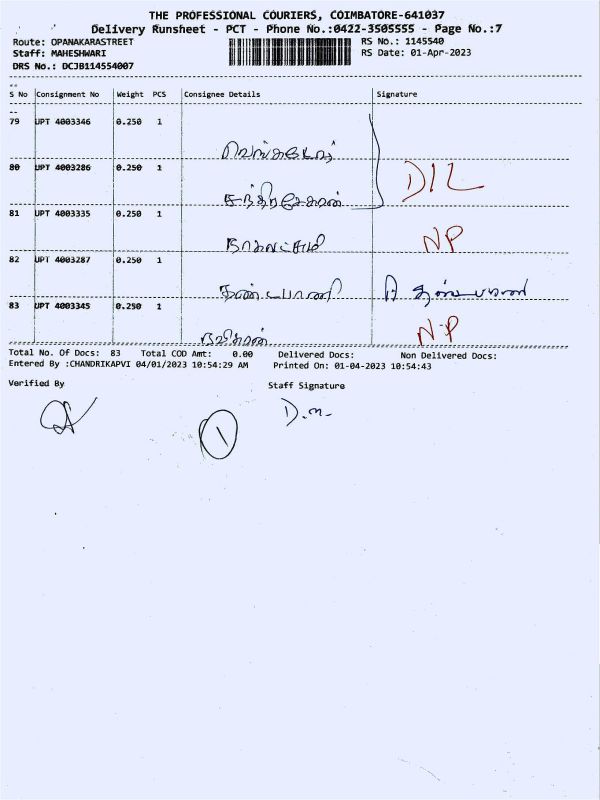 THE PROFESSIONAL COURIERS, COIMBATORE-641037
Delivery Runsheet - PCT - Phone No.:0422-3505555 - Page No.:7
Route: OPANAKARASTREET
RS No.: 1145540
Staff: MAHESHWARI
RS Date: 01-Apr-2023
DRS No.: DCJB114554007
S No Consignment No Weight PCS Consignee Details Signature
79 UPT 4003346 0.250 1
80 UPT 4003286 0.250 1
சந்திரசேகரன்
D/L
81 UPT 4003335 0.250 1
நாகலட்சுமி
NP
82 UPT 4003287 0.250 1
தண்டபாணி
83 UPT 4003345 0.250 1
N.P
Total No. Of Docs: 83 Total COD Amt: 0.00 Delivered Docs: Non Delivered Docs:
Entered By :CHANDRIKAPVI 04/01/2023 10:54:29 AM Printed On: 01-04-2023 10:54:43
Verified By Staff Signature
D.m.
1